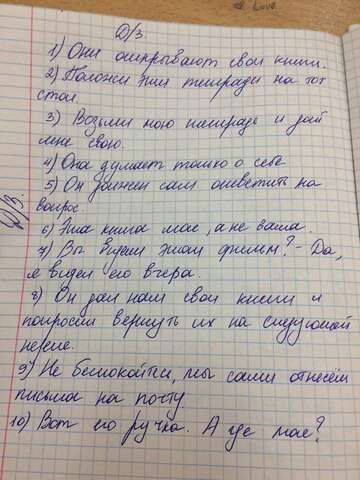 Love
Д/З
1) Они открывают свои книги.
2) Положи эти тетради на тот
стол.
3) Возьми мою тетрадь и дай
мне свою.
4) Она думает только о себе
5) Он должен сам ответить на
вопрос.
6) Эта книга моя, а не ваша.
7) Вы видели этот фильм? - Да,
я видел его вчера.
8) Он дал нам свои книги и
попросил вернуть их на следующей
неделе.
9) Не беспокойтесь, мы сами отнесём
письма на почту.
10) Вот его ручка. А где моя?
Д/З.